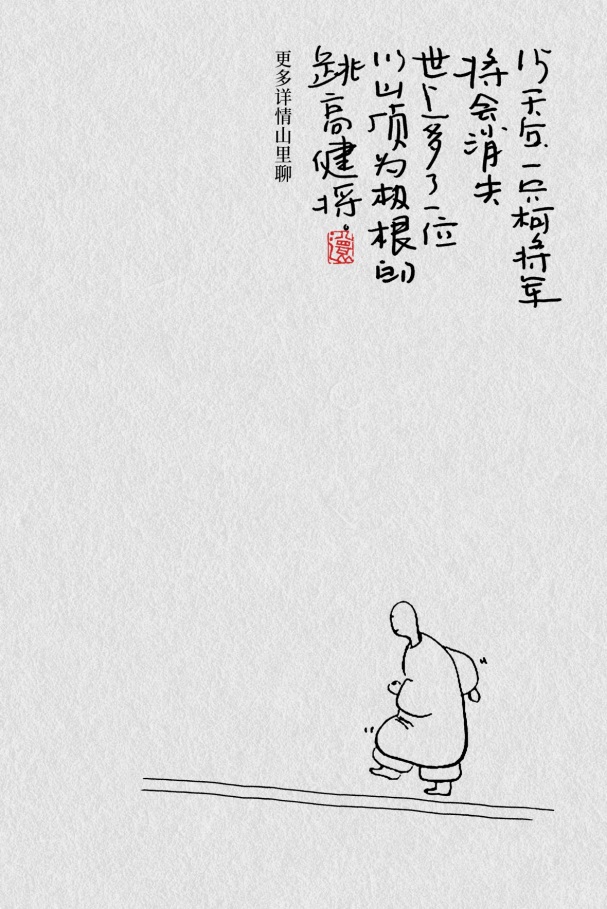 15天后一只柯将军
将会消失
世上多了一位
以山顶为极根的
跳高健将。
還
更多详情山里聊